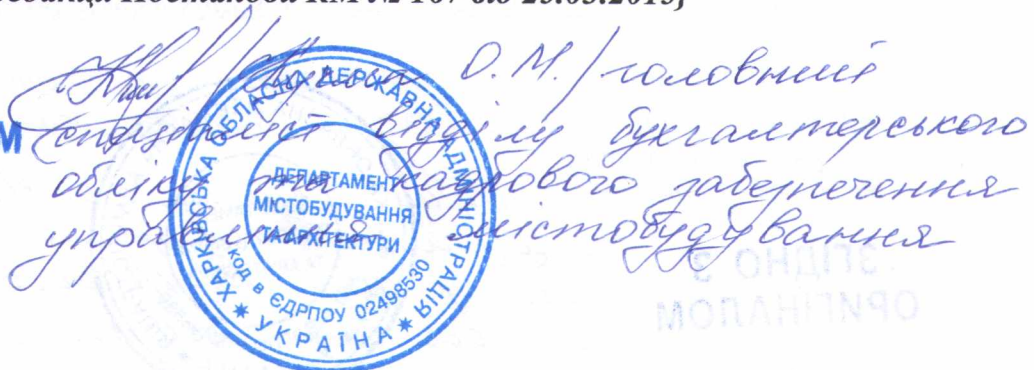 Постанова КМ № 167 від 25.03.2015}
О. М. / головний
М спеціаліст відділу бухгалтерського
обліку та кадрового забезпечення
управління містобудування
ХАРКІВСЬКА ОБЛАСНА ДЕРЖАВНА АДМІНІСТРАЦІЯ
* УКРАЇНА *
код в ЄДРПОУ 02498530
ДЕПАРТАМЕНТ
МІСТОБУДУВАННЯ
ТА АРХІТЕКТУРИ
ЗГІДНО З
ОРИГІНАЛОМ